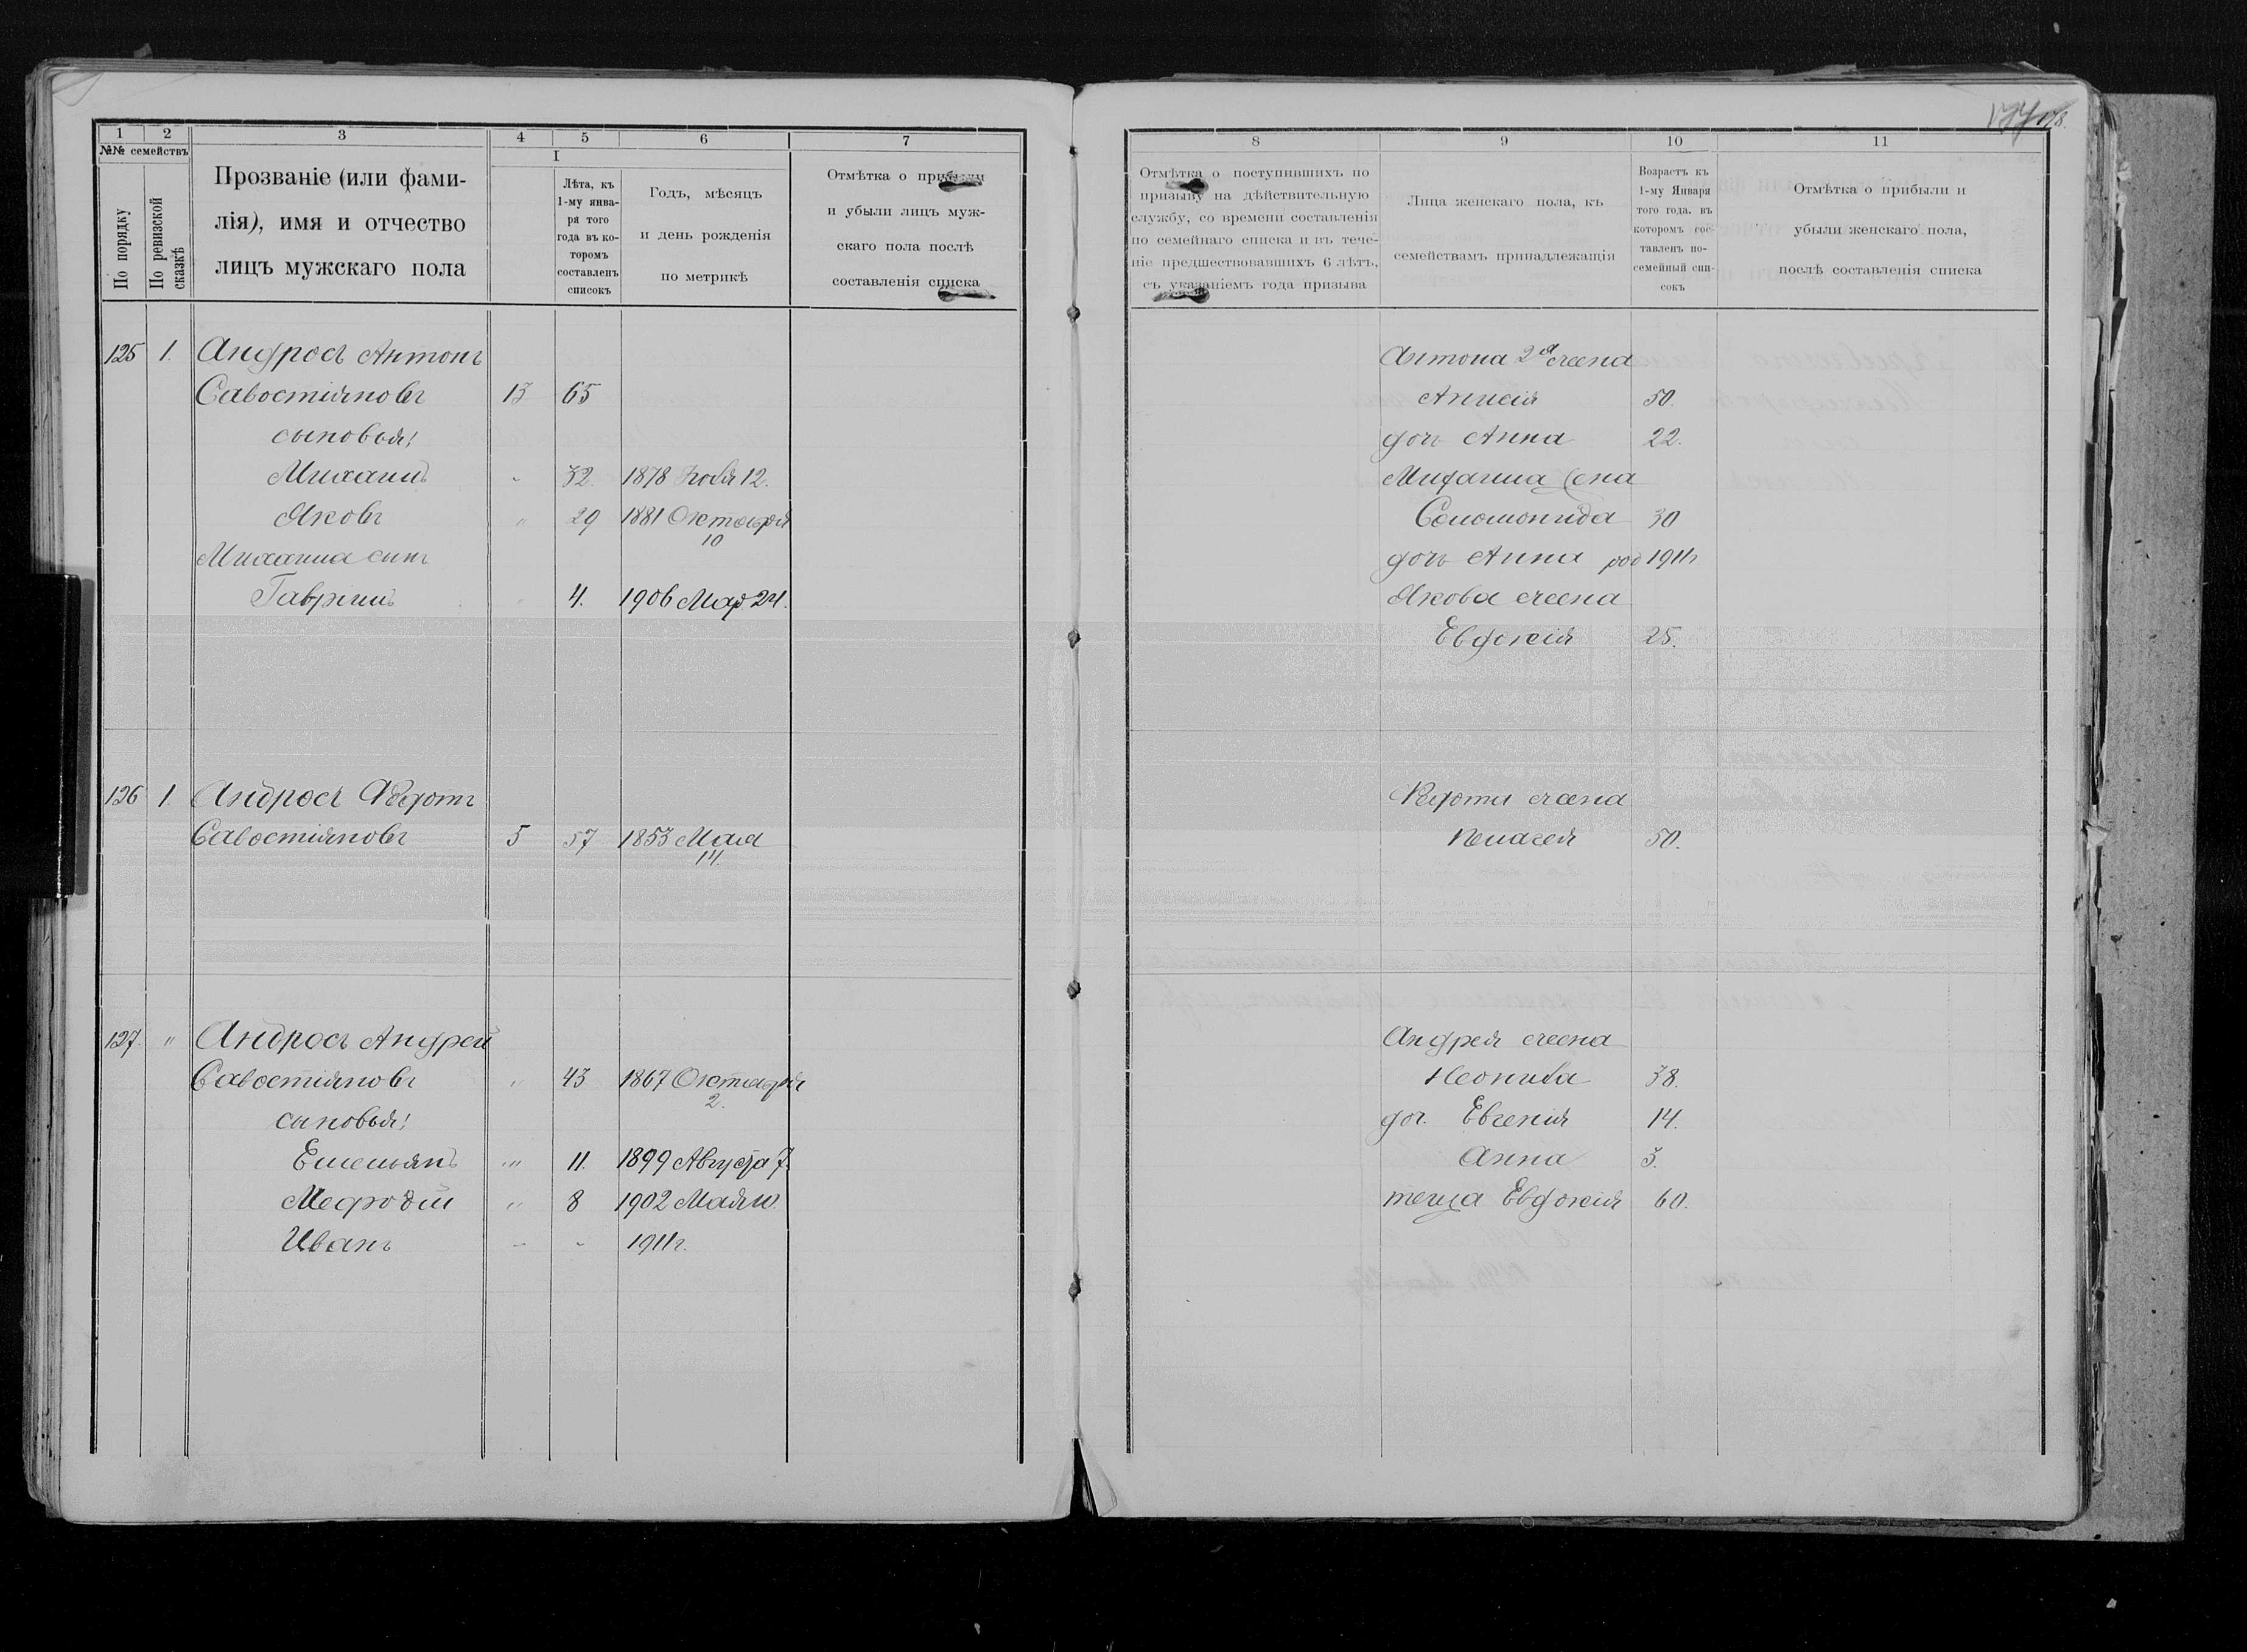 1 2 3 4 5 6 7
№№ семействъ
По порядку
По ревизской сказкѣ
Прозваніе (или фами-
лія), имя и отчество
лицъ мужскаго пола
I
Лѣта, къ
1-му янва-
ря того
года въ ко-
торомъ
составленъ
списокъ
Годъ, мѣсяцъ
и день рожденія
по метрикѣ
Отмѣтка о прибыли
и убыли лицъ муж-
скаго пола послѣ
составленія списка
125 1. Андросъ Антонъ
Савостіяновъ 13 65
сыновья:
Михаилъ " 32. 1878 Ноября 12.
Яковъ " 29 1881 Октября
10
Михаила сынъ
Гаврiилъ " 4. 1906 Мар. 24.
126 1. Андросъ Федотъ
Савостіяновъ 5 57 1853 Мая
14.
127. " Андросъ Андрей
Савостіяновъ " 43 1867 Октября
2.
сыновья:
Емельянъ " 11. 1899 Августа 7.
Мефодій " 8 1902 Мая 10.
Иванъ - - 1911г.
178.
8 9 10 11
Отмѣтка о поступившихъ по
призыву на дѣйствительную
службу, со времени составленія
по семейнаго списка и въ тече-
ніе предшествовавшихъ 6 лѣтъ,
съ указаніемъ года призыва
Лица женскаго пола, къ
семействамъ принадлежащія
Возрастъ къ
1-му Января
того года. въ
которомъ сос-
тавленъ по-
семейный спи-
сокъ
Отмѣтка о прибыли и
убыли женскаго пола,
послѣ составленія списка
Антона 2я жена
Анисія 50.
дочь Анна 22.
Михаила жена
Соломонида 30
дочь Анна род 1911г
Якова жена
Евдокія 25.
Федота жена
Пелагея 50.
Андрея жена
Неонила 38.
доч. Евгенія 14.
Анна 3.
теща Евдокія 60.